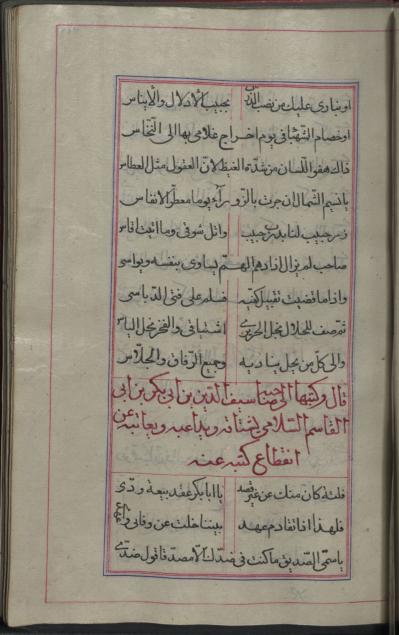 او من نصب بجبيب الادلال والايناس
او خصام الشهبا في يوم اخراج غلامي بها الى النخاس
ذاك هفو اللسان من شدة الغيظ لان العقول مثل العطاس
يا نسيم الشمال ان جزت بالزوراء يوما معطر الانفاس
زر حبيب لنا بدرب حبيب واتل شوقي وما
صاحب لم يزل اذا دهم الهم يساوى بنفسه ويواسي
واذا ما قضيت تقبيل كفيه فسلم على فتى الدباسي
ثم صف للجلال نجل الحريري اشتياقي والفخر نجل الياس
والى كل من يناديه وجميع الرفاق والجلاس
قال وكتبها الى صاحبه سيف الدين بن ابي بكر بن ابي
القاسم السلامي يشتاقه ويداعبه ويعاتبه عن
انقطاع كتبه عنه
فلتة كان منك عن غير قصد يا ابا بكر عقد بيعة ودي
فلهذا اذا تقادم عهد بيننا حلت عن وفائي
يا سمي الصديق ما كنت في صدك الا مصدقا قول ضدي